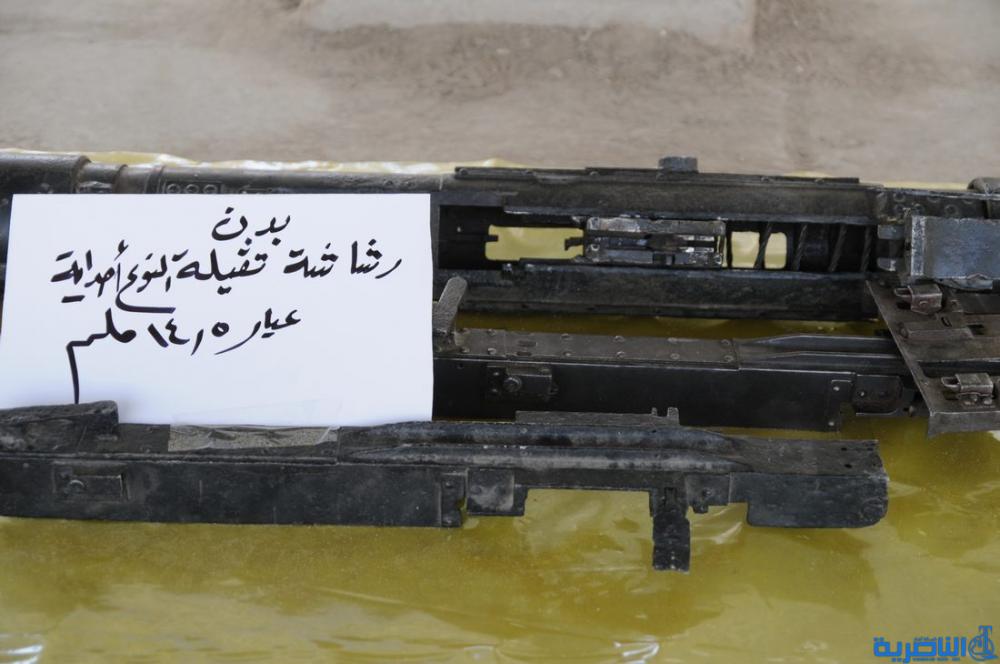 بدن
رشاشة ثقيلة النوع أحداية
عيار ١٤,٥ ملم
الناصرية